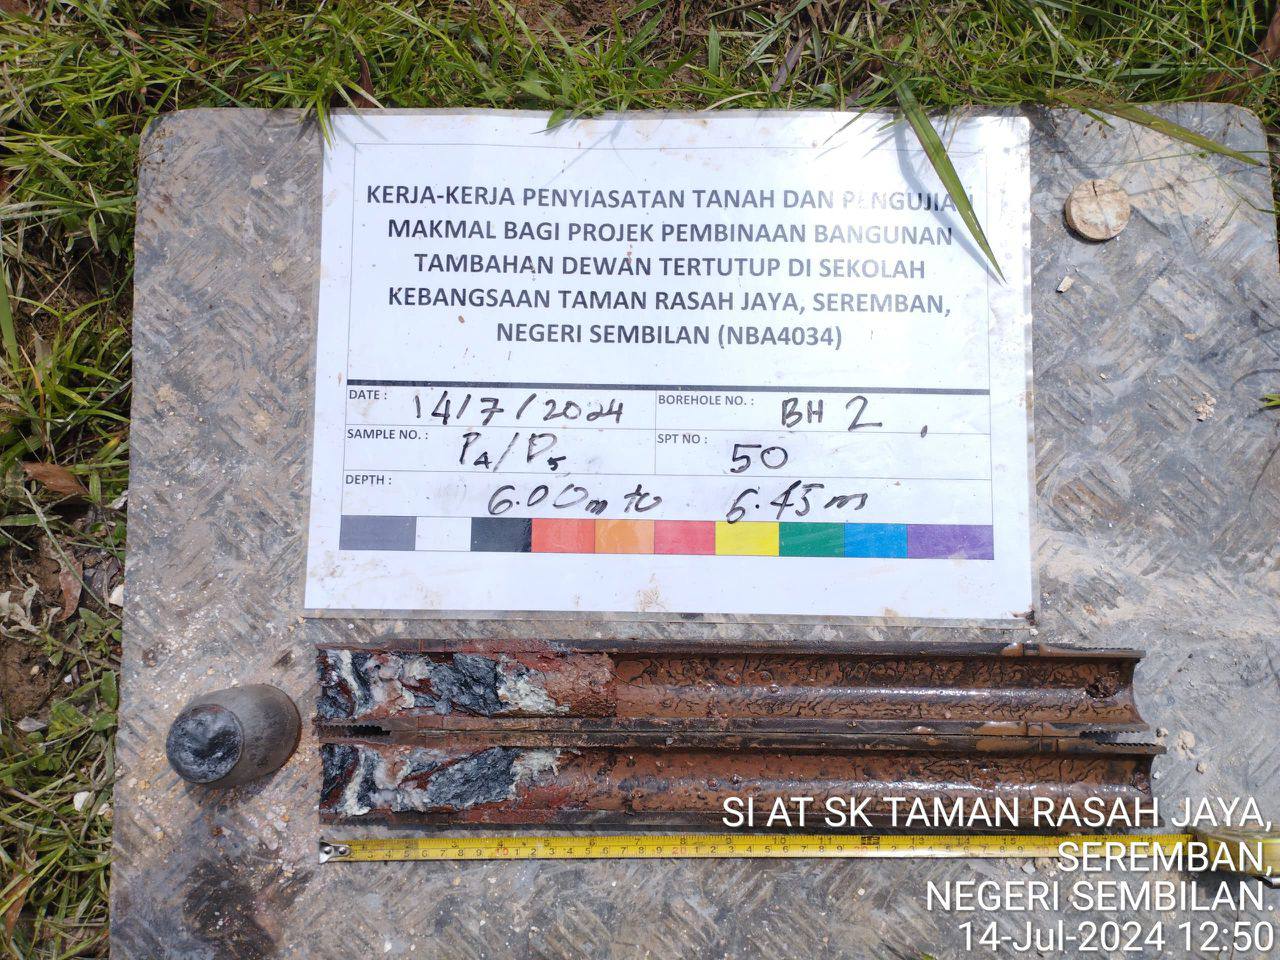 KERJA-KERJA PENYIASATAN TANAH DAN PENGUJIAN
MAKMAL BAGI PROJEK PEMBINAAN BANGUNAN
TAMBAHAN DEWAN TERTUTUP DI SEKOLAH
KEBANGSAAN TAMAN RASAH JAYA, SEREMBAN,
NEGERI SEMBILAN (NBA4034)
DATE : 14/7/2024 BOREHOLE NO. : BH 2.
SAMPLE NO. : P4/D5 SPT NO : 50
DEPTH : 6.00m to 6.45m
SI AT SK TAMAN RASAH JAYA,
SEREMBAN,
NEGERI SEMBILAN.
14-Jul-2024 12:50